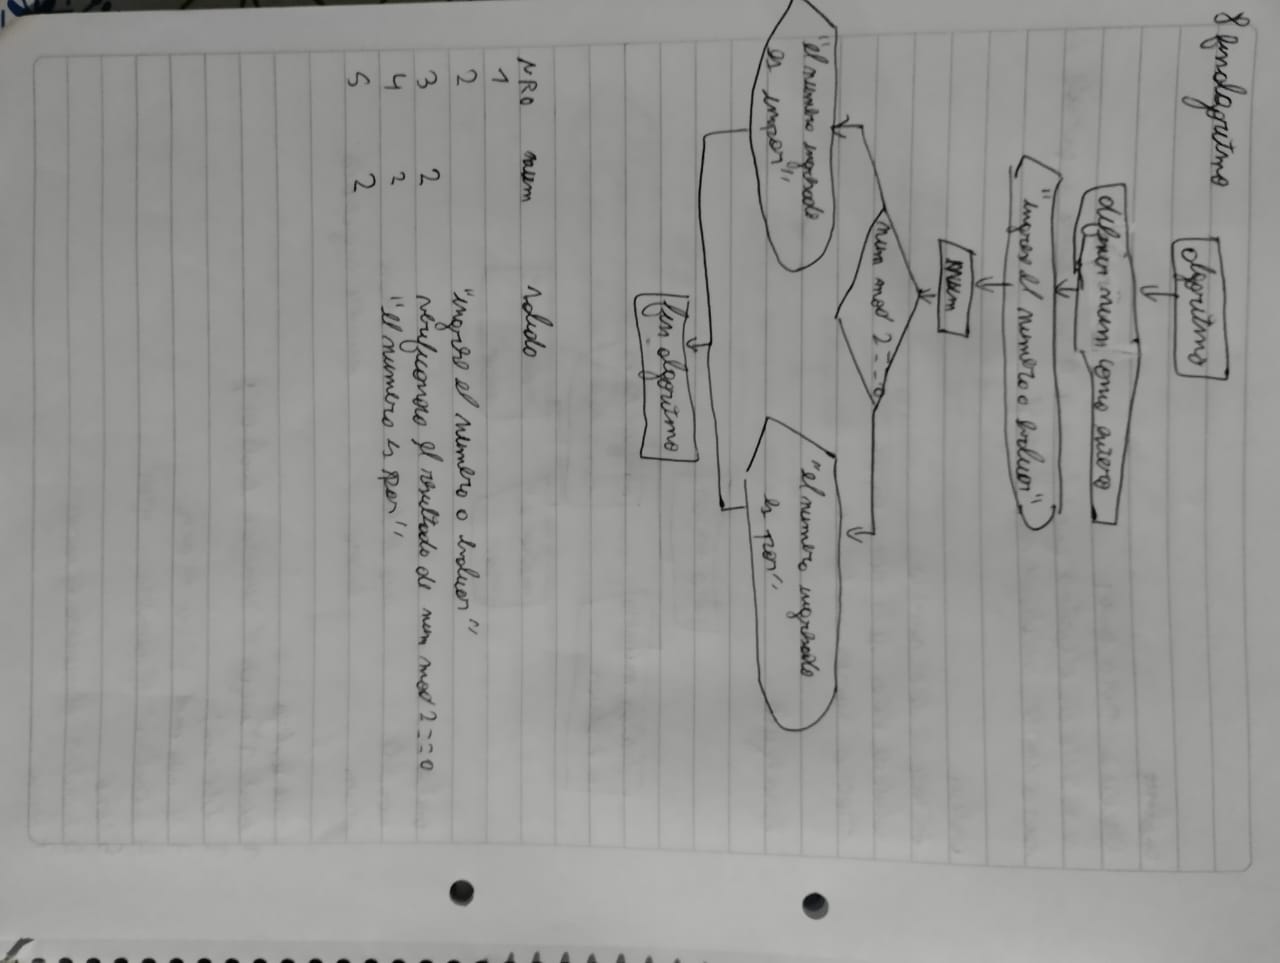 8 finalgoritmo
algoritmo
definir num como entero
"ingrese el numero a evaluar"
num
num mod 2 == 0
"el numero ingresado
es impar"
"el numero ingresado
es par"
fin algoritmo
NRO num salida
1
2 "ingrese el numero a evaluar"
3 2 verificando el resultado de num mod 2 == 0
4 2 "el numero es par"
5 2